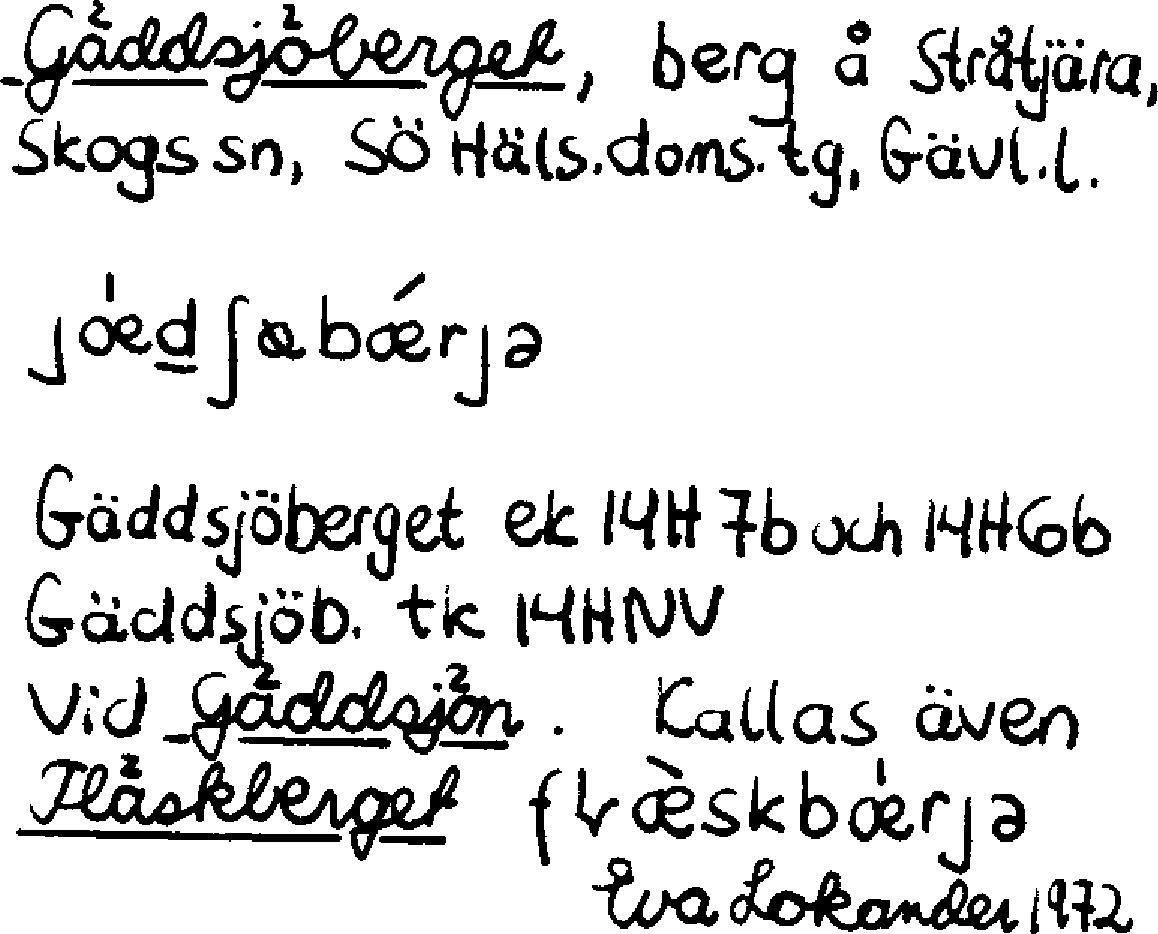 Gäddsjöberget, berg å Stråtjära,
Skogs sn, SÖ Häls. doms. tg, Gävl. l.
Gäddsjöberget ek 14H 7b och 14H6b
Gäddsjöb. tk 14HNV
Vid Gäddsjön. Kallas även
Fläskberget
Eva Lokander 1972